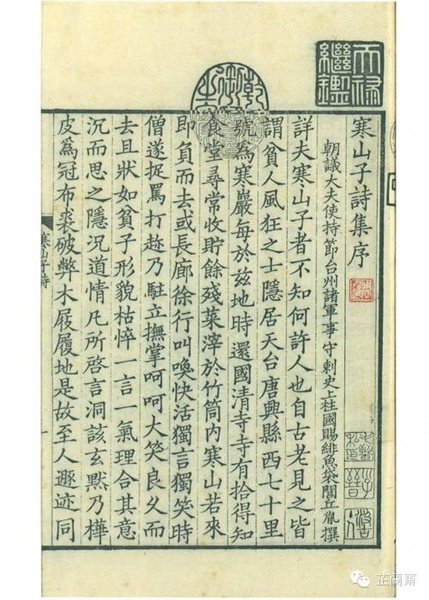 天祿繼鑑
寒山子詩集序
朝議大夫使持節台州諸軍事守刺史上柱國賜緋魚袋閭丘胤撰
詳夫寒山子者不知何許人也自古老見之皆
謂貧人風狂之士隱居天台唐興縣西七十里
號為寒巖每於茲地時還國清寺寺有拾得知
食堂尋常收貯餘殘菜滓於竹筒內寒山若來
即負而去或長廊徐行叫喚快活獨言獨笑時
僧遂捉罵打趂乃駐立撫掌呵呵大笑良久而
去且狀如貧子形貌枯悴一言一氣理合其意
沉而思之隱況道情凡所啓言洞該玄默乃樺
皮為冠布裘破弊木屐履地是故至人遯迹同
寒山子詩
芷蘭齋